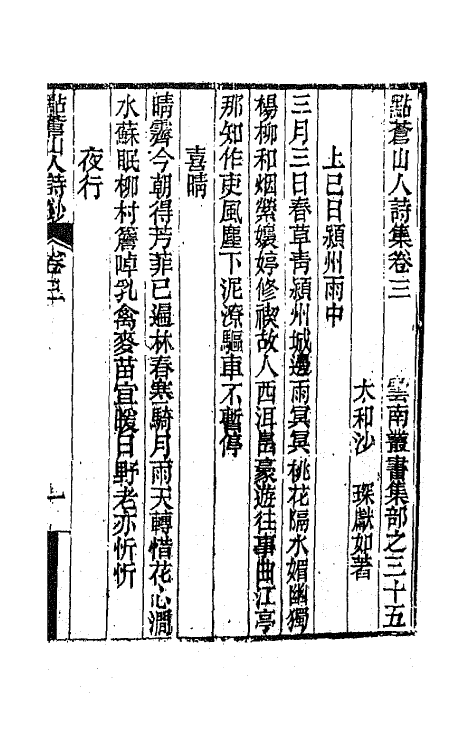 點蒼山人詩集卷三　雲南叢書集部之三十五
太和沙　琛獻如著
上巳日潁州雨中
三月三日春草青潁州城邊雨冥冥桃花隔水媚幽獨
楊柳和烟縈嬝婷修禊故人西洱曷豪遊往事曲江亭
那知作吏風塵下泥潦驅車不暫停
喜晴
晴霽今朝得芳菲已遍林春寒一騎月雨天轉惜花心澗
水蘇眠柳村簷哢乳禽麥苗宜暖日野老亦忻忻
夜行
點蒼山人詩鈔　卷三　一